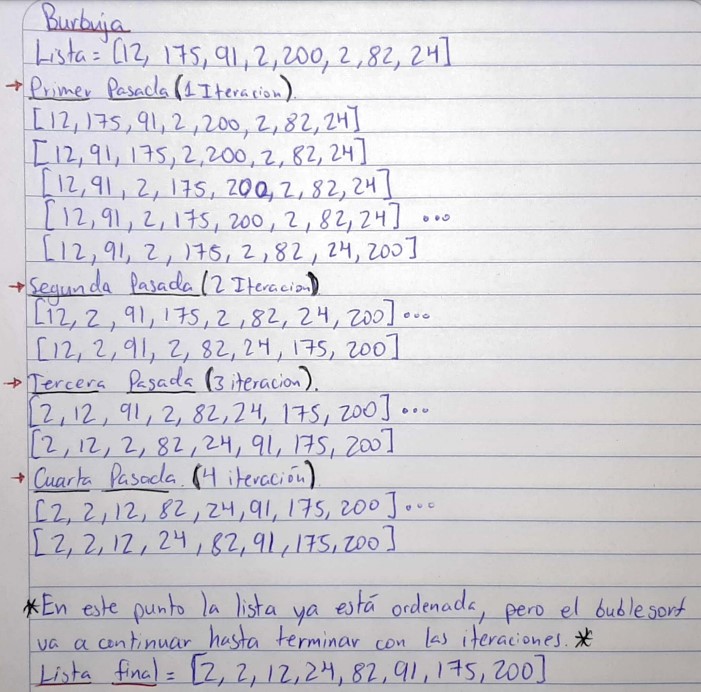 Burbuja
Lista = [12, 175, 91, 2, 200, 2, 82, 24]
→ Primer Pasada (1 Iteracion).
[12, 175, 91, 2, 200, 2, 82, 24]
[12, 91, 175, 2, 200, 2, 82, 24]
[12, 91, 2, 175, 200, 2, 82, 24]
[12, 91, 2, 175, 200, 2, 82, 24] ...
[12, 91, 2, 175, 2, 82, 24, 200]
→ Segunda Pasada (2 Iteracion)
[12, 2, 91, 175, 2, 82, 24, 200] ...
[12, 2, 91, 2, 82, 24, 175, 200]
→ Tercera Pasada (3 iteracion).
[2, 12, 91, 2, 82, 24, 175, 200] ...
[2, 12, 2, 82, 24, 91, 175, 200]
→ Cuarta Pasada. (4 iteración)
[2, 2, 12, 82, 24, 91, 175, 200] ...
[2, 2, 12, 24, 82, 91, 175, 200]
*En este punto la lista ya está ordenada, pero el bublesort
va a continuar hasta terminar con las iteraciones. *
Lista final = [2, 2, 12, 24, 82, 91, 175, 200]